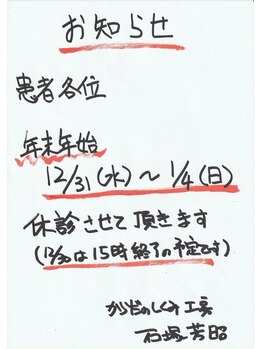 お知らせ
患者各位
年末年始
12/31(水)～1/4(日)
休診させて頂きます
(12/30は15時終了の予定です)
からだのしくみ工房
石塚芳昭